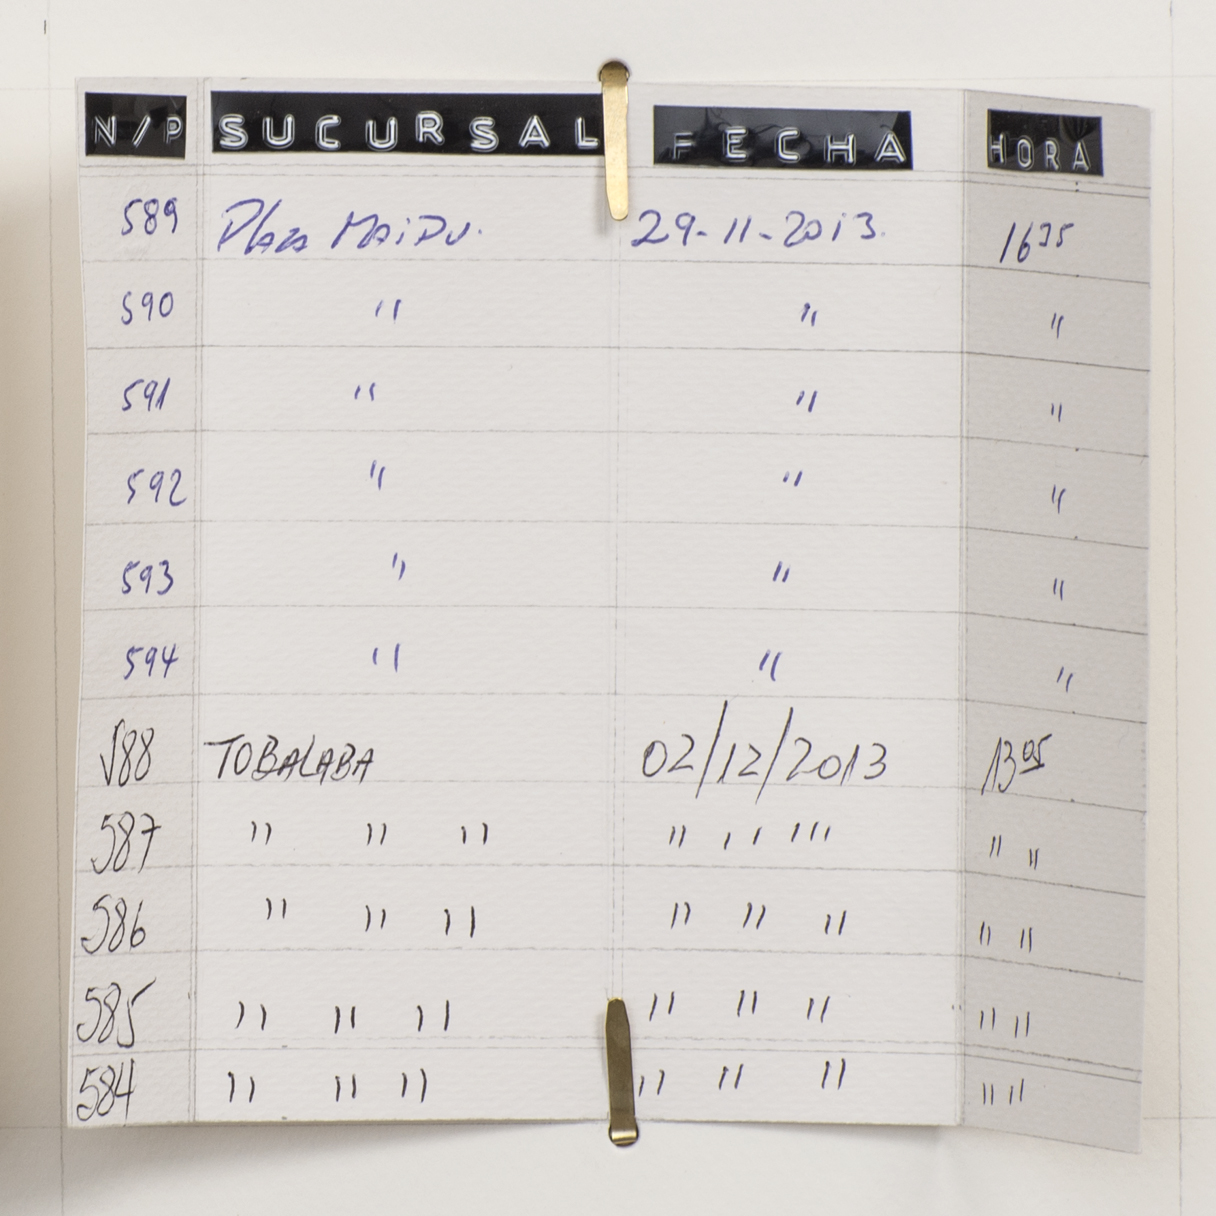 N/P SUCURSAL FECHA HORA
589 Plaza Maipu. 29-11-2013. 16 35
590 " " "
591 " " "
592 " " "
593 " " "
594 " " "
588 TOBALABA 02/12/2013 13 05
587 " " " " " "' " "
586 " " " " " " " "
585 " " " " " " " "
584 " " " " " " " "